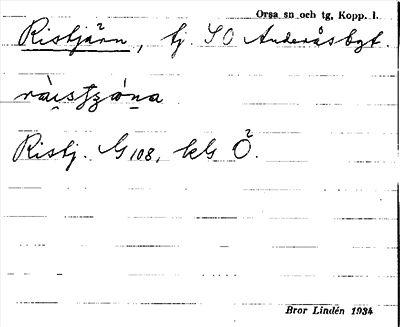 Orsa sn och tg, Kopp. l.
Ristjärn, tj. SO Anderåsbgt.
Ristj. G 108, kG Ö.
Bror Lindén 1934